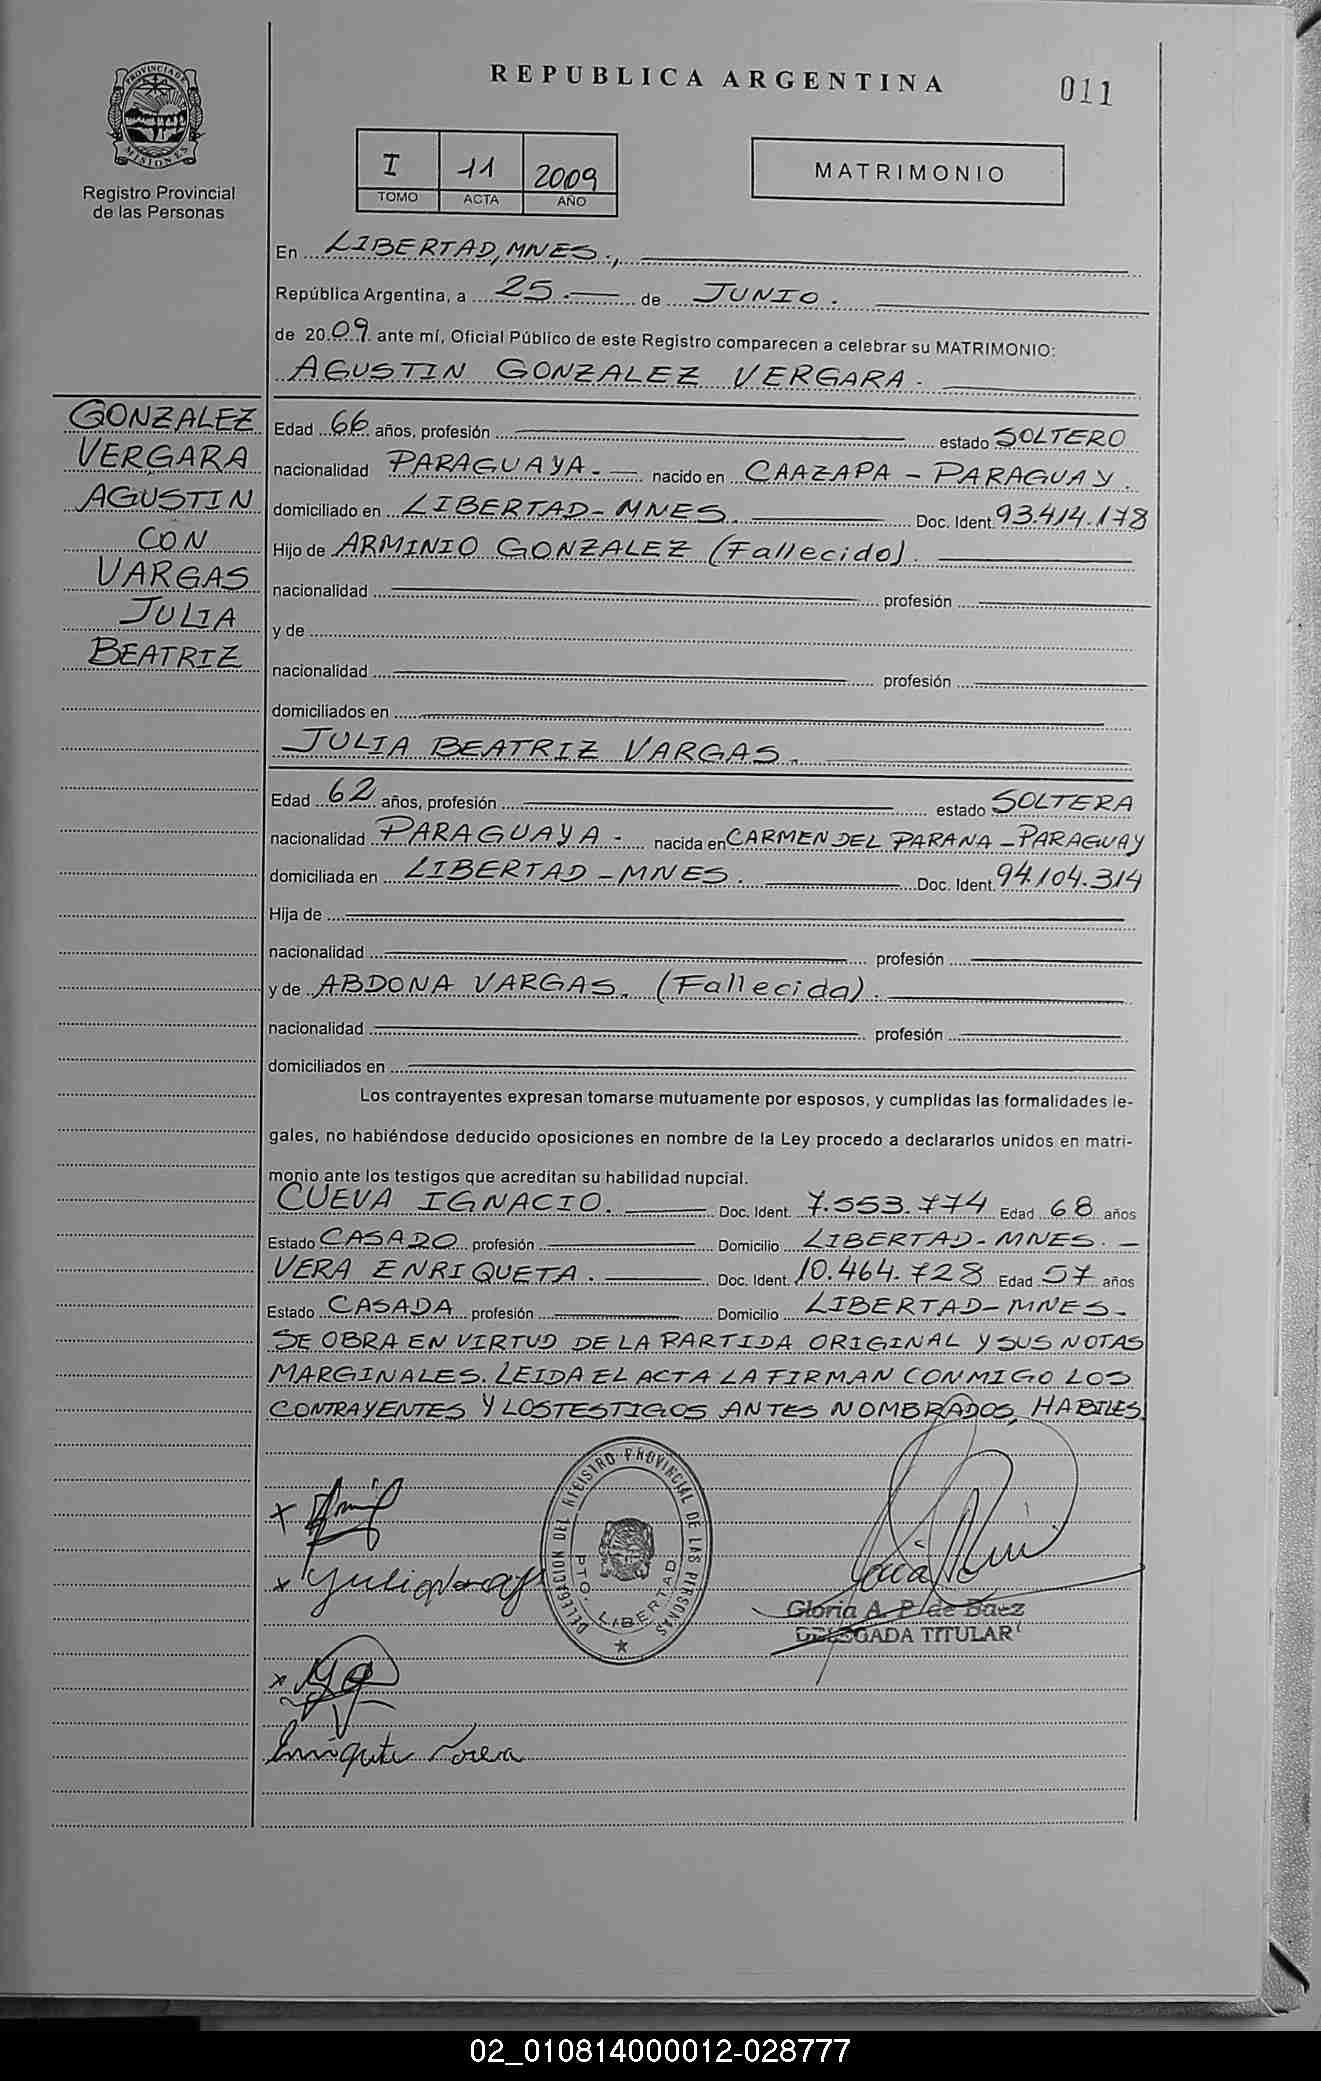 REPUBLICA ARGENTINA
011
PROVINCIA DE MISIONES
Registro Provincial
de las Personas
I 11 2009
TOMO ACTA AÑO
MATRIMONIO
En LIBERTAD, MNES.,
República Argentina, a 25.— de JUNIO.
de 2009 ante mí, Oficial Público de este Registro comparecen a celebrar su MATRIMONIO:
AGUSTIN GONZALEZ VERGARA.
GONZALEZ
VERGARA
AGUSTIN
CON
VARGAS
JULIA
BEATRIZ
Edad 66 años, profesión estado SOLTERO
nacionalidad PARAGUAYA.— nacido en CAAZAPA - PARAGUAY.
domiciliado en LIBERTAD - MNES. Doc. Ident. 93.414.178
Hijo de ARMINIO GONZALEZ (Fallecido).
nacionalidad profesión
y de
nacionalidad profesión
domiciliados en
JULIA BEATRIZ VARGAS.
Edad 62 años, profesión estado SOLTERA
nacionalidad PARAGUAYA - nacida en CARMEN DEL PARANA - PARAGUAY
domiciliada en LIBERTAD - MNES. Doc. Ident. 94.104.314
Hija de
nacionalidad profesión
y de ABDONA VARGAS. (Fallecida).
nacionalidad profesión
domiciliados en
Los contrayentes expresan tomarse mutuamente por esposos, y cumplidas las formalidades le-
gales, no habiéndose deducido oposiciones en nombre de la Ley procedo a declararlos unidos en matri-
monio ante los testigos que acreditan su habilidad nupcial.
CUEVA IGNACIO. Doc. Ident. 7.553.774 Edad 68 años
Estado CASADO profesión Domicilio LIBERTAD - MNES. -
VERA ENRIQUETA. Doc. Ident. 10.464.728 Edad 57 años
Estado CASADA profesión Domicilio LIBERTAD - MNES -
SE OBRA EN VIRTUD DE LA PARTIDA ORIGINAL Y SUS NOTAS
MARGINALES. LEIDA EL ACTA LA FIRMAN CONMIGO LOS
CONTRAYENTES Y LOS TESTIGOS ANTES NOMBRADOS, HABILES.
DELEGACION DEL REGISTRO PROVINCIAL DE LAS PERSONAS
PTO. LIBERTAD
Gloria A. P. de Baez
DELEGADA TITULAR
02_010814000012-028777